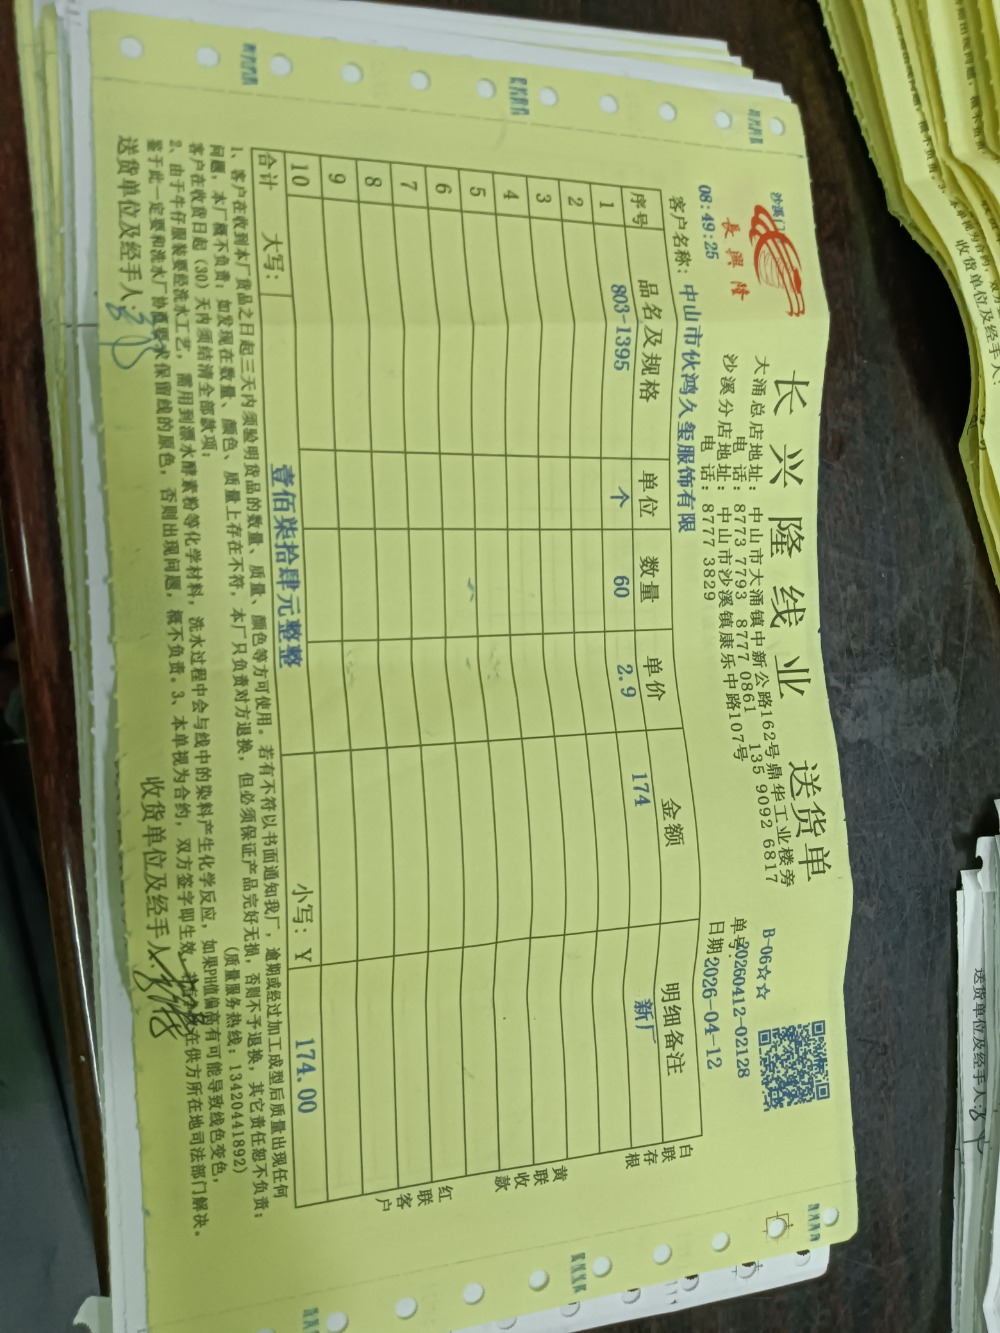 沙溪门
長興隆
08:49:25
长兴隆线业 送货单
大涌总店地址：中山市大涌镇中新公路162号鼎华工业楼旁
电 话：8773 7793 8777 0861 135 9092 6817
沙溪分店地址：中山市沙溪镇康乐中路107号
电 话：8777 3829
B-06☆☆
单号：20260412-02128
日期 2026-04-12
客户名称：中山市伙鸿久玺服饰有限
序号 品名及规格 单位 数量 单价 金额 明细备注
1 803-1395 个 60 2.9 174 新厂
2
3
4
5
6
7
8
9
10
合计 大写：壹佰柒拾肆元整整 小写：Y 174.00
白联存根
黄联收款
红联客户
1、客户在收到本厂货品之日起三天内须验明货品的数量、质量、颜色等方可使用。若有不符以书面通知我厂，逾期或经过加工成型后质量出现任何
问题，本厂概不负责；如发现在数量、颜色、质量上存在不符，本厂只负责对方退换，但必须保证产品完好无损，否则不予退换，其它责任恕不负责；
客户在收货日起（30）天内须结清全部款项； （质量服务热线：13420441892）
2、由于牛仔服装要经洗水工艺，需用到漂水酵素粉等化学材料，洗水过程中会与线中的染料产生化学反应，如果PH值偏高有可能导致线色变色，
鉴于此一定要和洗水厂协商要求保留线的原色，否则出现问题，概不负责。3、本单视为合约，双方签字即生效，在供方所在地司法部门解决。
送货单位及经手人： 收货单位及经手人：
收货单位及经手人：
送货单位及经手人：